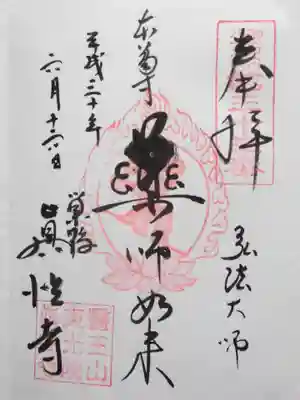 奉拝
弘法大師
本尊
薬師如来
平成三十年
六月十六日
巣鴨
眞性寺
醫王山